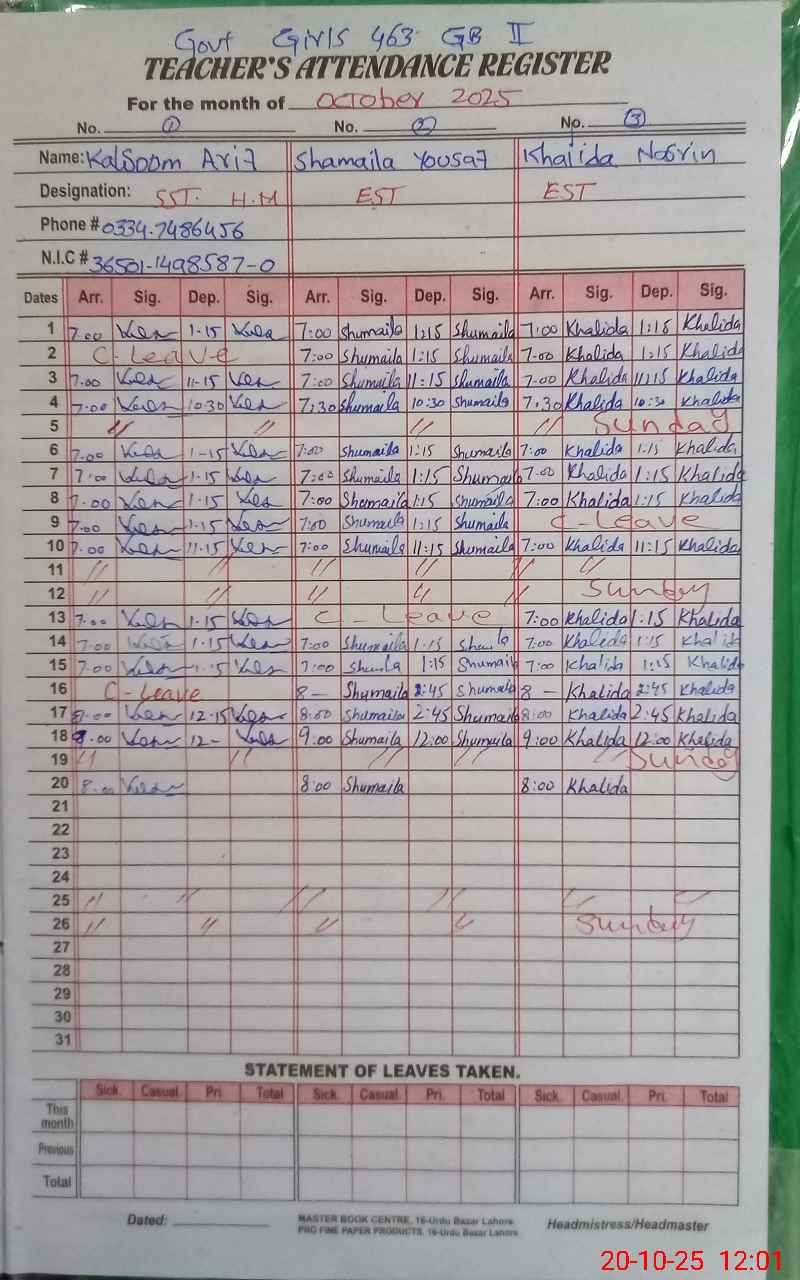 Govt Girls 463 GB II
TEACHER'S ATTENDANCE REGISTER
For the month of October 2025
No. 1 No. 2 No. 3
Name: Kalsoom Arif Shamaila Yousaf Khalida Nasrin
Designation: SST. H.M EST EST
Phone # 0334-7486456
N.I.C # 36501-1498587-0
Dates Arr. Sig. Dep. Sig. Arr. Sig. Dep. Sig. Arr. Sig. Dep. Sig.
1 7.00 1-15 7:00 Shumaila 1:15 Shumaila 7:00 Khalida 1:15 Khalida
2 C-Leave 7:00 Shumaila 1:15 Shumaila 7-00 Khalida 1:15 Khalida
3 7.00 11-15 7:00 Shumaila 11:15 Shumaila 7-00 Khalida 11:15 Khalida
4 7.00 10.30 7:30 Shumaila 10:30 Shumaila 7.30 Khalida 10:30 Khalida
5 // // // // Sunday
6 7.00 1-15 7:00 Shumaila 1:15 Shumaila 7:00 Khalida 1:15 Khalida
7 7.00 1-15 7:00 Shumaila 1:15 Shumaila 7-00 Khalida 1:15 Khalida
8 7.00 1-15 7:00 Shamaila 1:15 Shumaila 7:00 Khalida 1:15 Khalida
9 7.00 1-15 7:00 Shumaila 1:15 Shumaila C-Leave
10 7.00 11-15 7:00 Shumaila 11:15 Shumaila 7:00 Khalida 11:15 Khalida
11 // // // // // //
12 // // // // // Sunday
13 7.00 1-15 C-Leave 7:00 Khalida 1:15 Khalida
14 7.00 1-15 7:00 Shumaila 1:15 7:00 Khalida 1:15 Khalida
15 7.00 1-15 7:00 1:15 Shumaila 7:00 Khalida 1:15 Khalida
16 C-Leave 8 — Shumaila 2:45 Shumaila 8 - Khalida 2:45 Khalida
17 8.00 12-15 8:00 Shumaila 2:45 Shumaila 8:00 Khalida 2:45 Khalida
18 9.00 12- 9:00 Shumaila 12:00 Shumaila 9:00 Khalida 12:00 Khalida
19 // // // // // Sunday
20 8.00 8:00 Shumaila 8:00 Khalida
21
22
23
24
25 // // // // // //
26 // // // // Sunday
27
28
29
30
31
STATEMENT OF LEAVES TAKEN.
Sick. Casual. Pri. Total Sick. Casual. Pri. Total Sick. Casual. Pri. Total
This month
Previous
Total
Dated: MASTER BOOK CENTRE, 16-Urdu Bazar Lahore. Headmistress/Headmaster
PRO FINE PAPER PRODUCTS, 16-Urdu Bazar Lahore
20-10-25 12:01